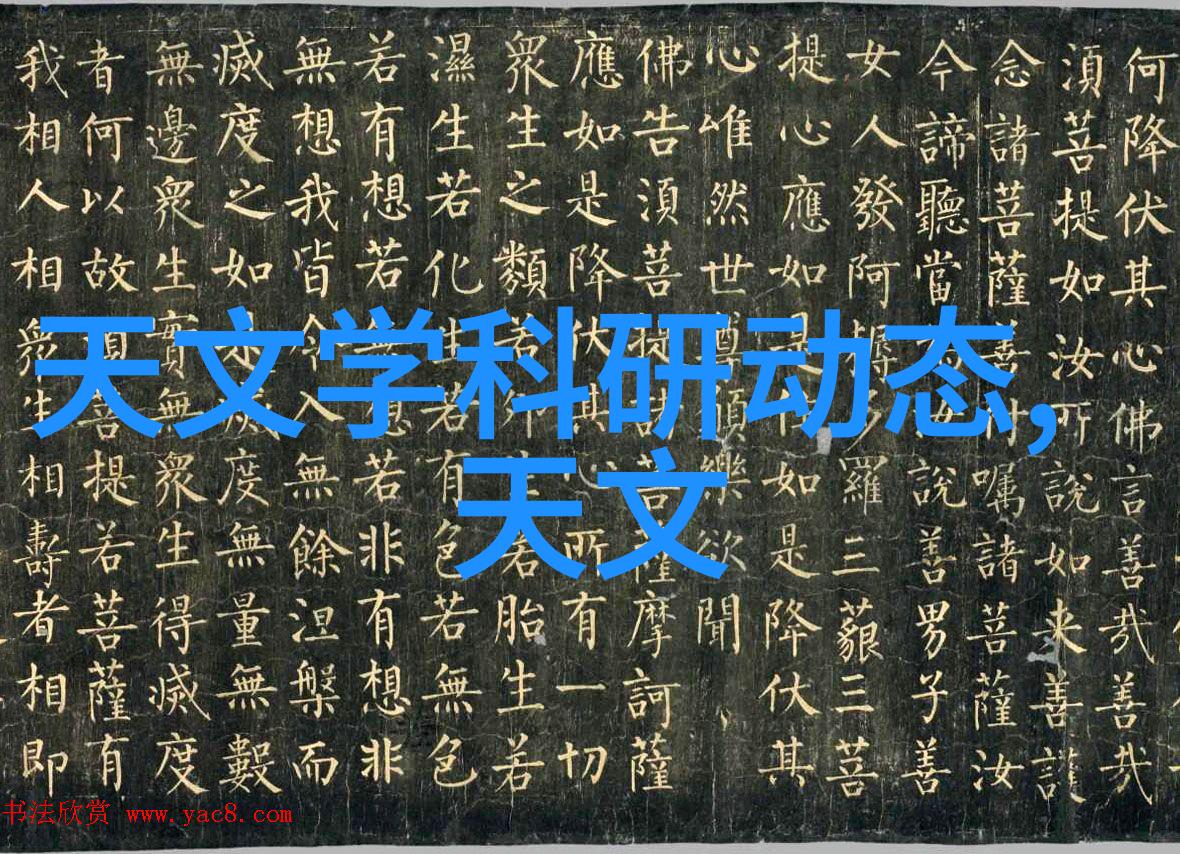 何降伏其心佛言善哉善哉
須菩提如汝所說如来善護
念諸菩薩善付嘱諸菩薩汝
今諦聽當為汝說善男子善
女人發阿耨多羅三藐三菩
提心應如是住如是降伏其
心唯然世尊願樂欲聞
佛告須菩提諸菩薩摩訶薩
應如是降伏其心所有一切
衆生之類若卵生若胎生若
濕生若化生若有色若無色
若有想若無想若非有想非
無想我皆令入無餘涅槃而
滅度之如是滅度無量無數
無邊衆生實無衆生得滅度
者何以故須菩提若菩薩有
我相人相衆生相壽者相即
天文学科研动态,
天文
书法欣赏 www.yac8.com